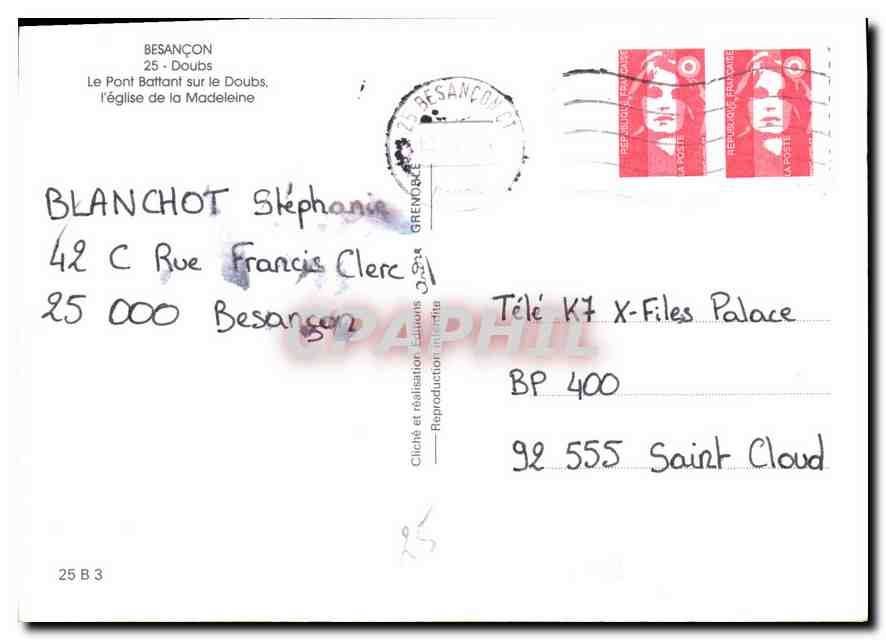 BESANÇON
25 - Doubs
Le Pont Battant sur le Doubs,
l'église de la Madeleine
25 BESANÇON CT
RÉPUBLIQUE FRANÇAISE
LA POSTE
RÉPUBLIQUE FRANÇAISE
LA POSTE
BLANCHOT Stéphanie
42 C Rue Francis Clerc
25 000 Besançon
Cliché et réalisation Editions André GRENOBLE
Reproduction interdite
CPAPHIL
Télé K7 X-Files Palace
BP 400
92 555 Saint Cloud
25
25 B 3